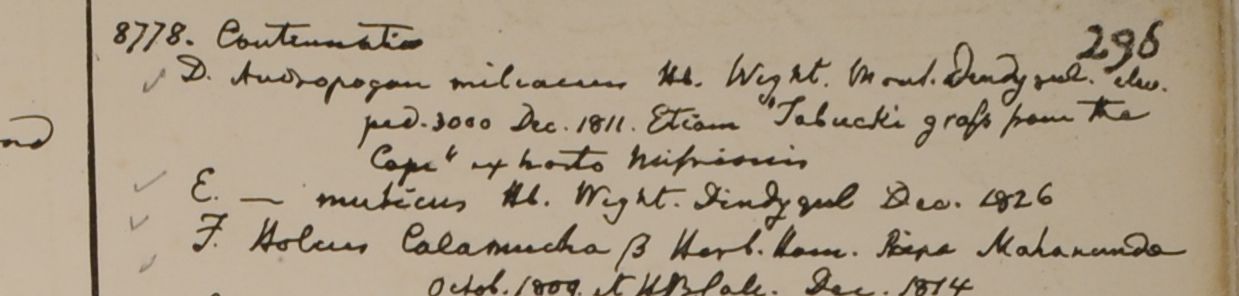 296
8778. Continuatio
D. Andropogon miliaceus Hb. Wight. Mont. Dindygul. elev.
ped. 3000 Dec. 1811. Etiam "Tabucki grass from the
Cape" ex horto Missionis
E. — muticus Hb. Wight. Dindygul Dec. 1826
F. Holcus Calamucha β Herb. Ham. Ripa Mahanunda
Octob. 1809. et HBCalc. Dec. 1814